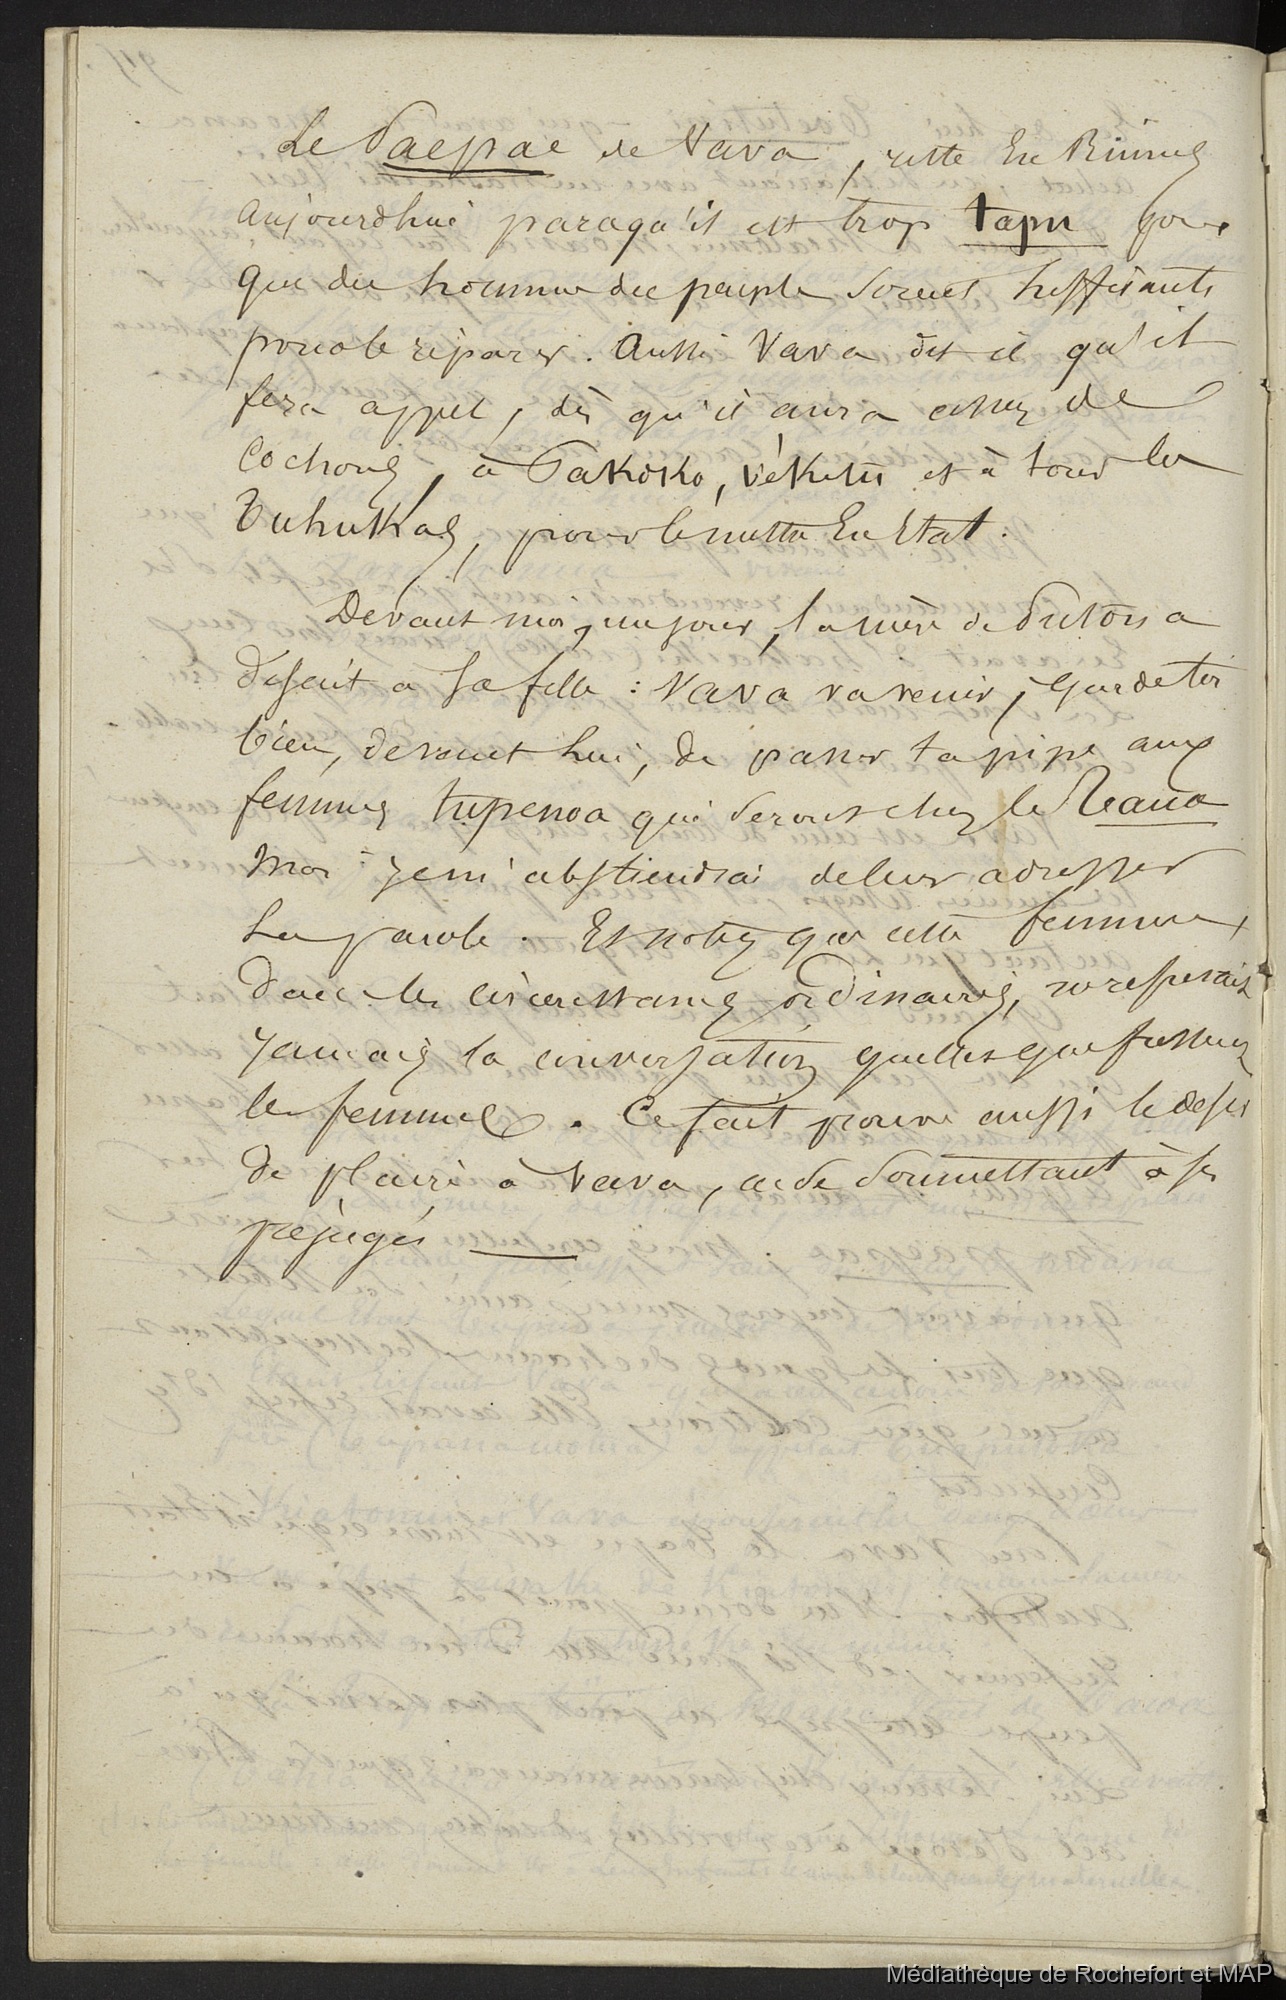 Le Paepae de Vava, reste En Ruines
aujourdhui paraqu'il est trop tapu pour
que des hommes du peuple soient suffisants
pour le réparer. Aussi Vava dit il qu'il
fera appel, dès qu'il aura assez de
Cochons, à Pakoko, Vékétu et à tous les
Tuhukas, pour le mettre En Etat.
Devant moi, un jour, la mère de
disait a sa fille : Vava va venir, garde toi
bien, devant lui, de passer ta pipe aux
femmes tupenoa qui seront chez le
Moi je m'abstiendrai de leur adresser
La parole. Et notez que cette femme,
dans les circonstances ordinaires, ne refusait
jamais la conversation quelles que fussent
les femmes. Ce fait prouve aussi le desir
de plaire à Vava, en se soumettant à ses
prejugés
Médiathèque de Rochefort et MAP